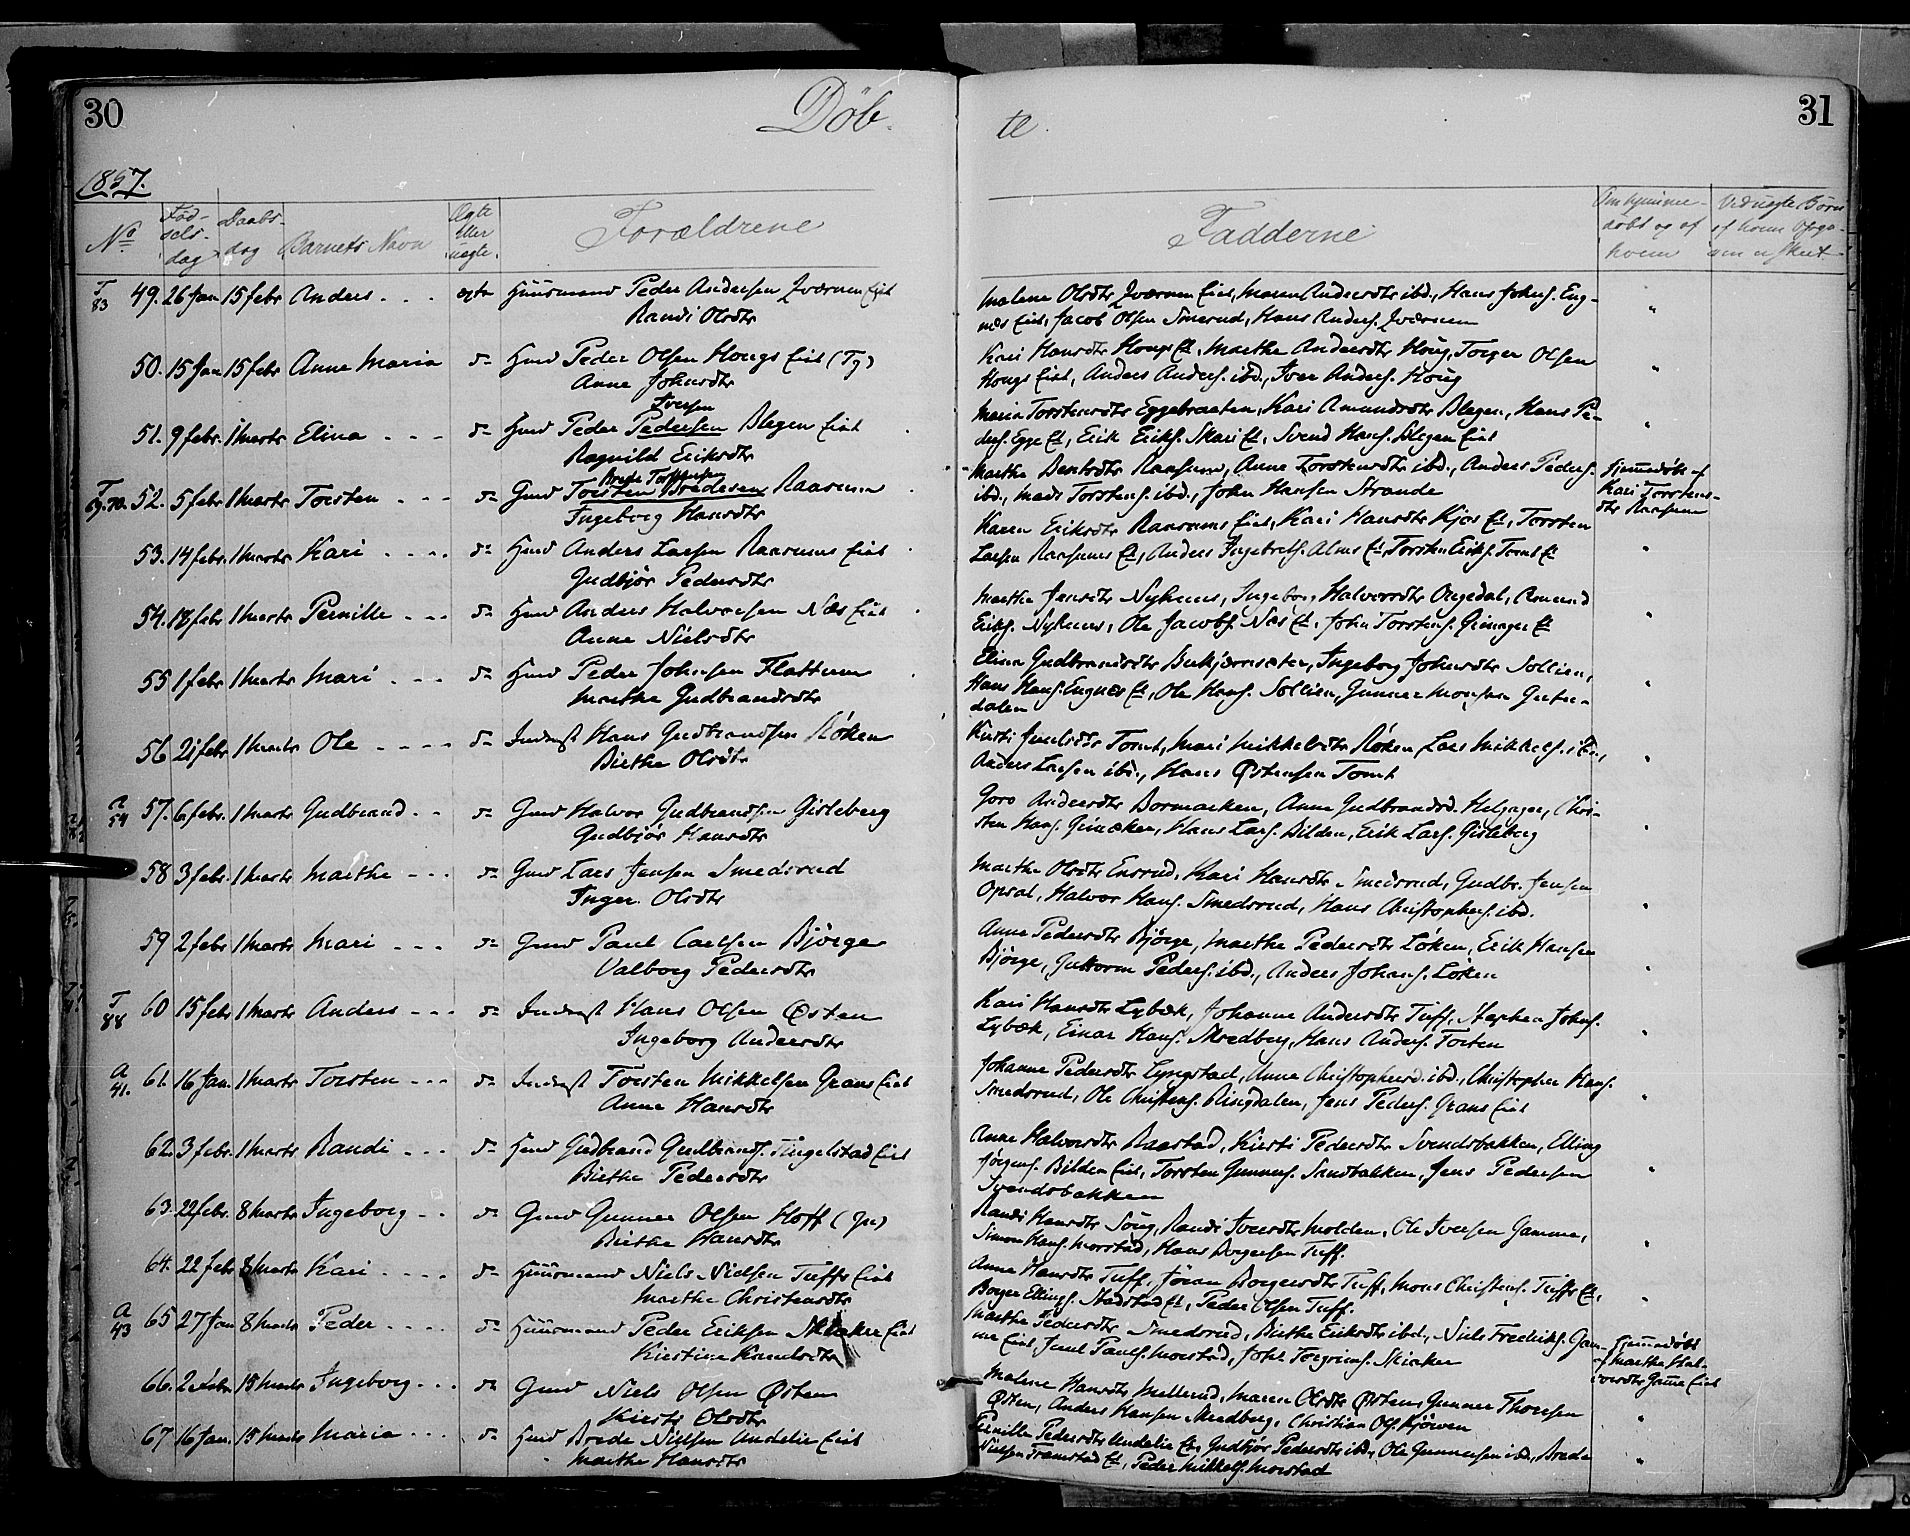 30
Døb-
te
31
1857.
No
Fød-
sels-
dag
Daabs-
dag
Barnets Navn
Ægte
eller
uægte.
Forældrene
Fadderne
døbt og af
hvem
T
83
49. 26 Jan 15 febr Anders egte Huusmand Peder Andersen Eiet
Randi Olsdtr
Malene Olsdtr Eiet, Maren Andersdtr ibd., Hans Johns. Eng-
næs Eiet, Jacob Olsen Smerud, Hans Anders.
50. 15 Jan 15 febr Anne Maria do Hmd Peder Olsen Hougs Eiet
Anne Johnsdtr
Kari Hansdtr Hougs Et, Marthe Andersdtr Houg, Torger Olsen
Hougs Eiet, Anders Anders. ibd., Iver Anders. Houg
51. 9 febr. 1 Marts Elina do Hmd Peder Pedersen Blegen Eiet
Iversen
Ragnild Eriksdtr
Maria Torstensdtr Eggebraaten, Kari Amundsdtr Blegen, Hans Pe-
ders. Egge Et, Erik Eriks. Skari Et, Svend Hans. Blegen Eiet
T
52. 5 febr 1 Marts Torsten do Gmd Torsten Bredesen Raasum
Brede Torstensen
Ingeborg Hansdtr
Marthe Berntsdtr Raasum, Anne Torstensdtr ibd., Anders Peders.
ibd., Mads Torstens. ibd., John Hansen Strande
Hjemmedøbt af
Kari Torstens-
dtr Raasum
53. 14 febr. 1 Marts Kari do Hmd Anders Larsen Raasums Eiet
Gudbjør Pedersdtr
Karen Eriksdtr Raasums Eiet, Kari Hansdtr Kjos Et, Torsten
Larsen Raasums Et, Anders Ingebreths. Alms Et, Torsten Eriks. Tomt Et
54. 18 febr 1 Marts Pernille do Hmd Anders Halvorsen Næs Eiet
Anne Nielsdtr
Marthe Jensdtr Nyhuus, Ingeborg Halvorsdtr Ongedal, Amund
Eriks. Nyhuus, Ole Jacobs. Næs Et, John Torstens. Grinager Et
55 1 febr 1 Marts Mari do Hmd Peder Johnsen Flattum
Marthe Gudbrandsdtr
Elina Gudbrandsdtr, Ingeborg Johnsdtr Sollien,
Hans Hans. Engnæs Et, Ole Hans. Sollien, Gunner Monsen
dalen
56 21 febr 1 Marts Ole do Inderst Hans Gudbrandsen Røken
Birthe Olsdtr
Kirsti Tomt, Mari Mikkelsdtr Røken, Lars Mikkels. ibd.,
Anders Larsen ibd., Hans Østensen Tomt
A
54
57. 6 febr. 1 Marts Gudbrand do Gmd Halvor Gudbrandsen Gisleberg
Gudbjør Hansdtr
Goro Andersdtr Dormarken, Anne Gudbrandsd. Helgager, Chri-
sten Hans. Grinaker, Hans Lars. Bilden, Erik Lars. Gisleberg
58 3 febr. 1 Marts Marthe do Gmd Lars Jensen Smedsrud
Inger Olsdtr
Marthe Olsdtr Ensrud, Kari Hansdtr Smedsrud, Gudbr. Jensen
Opsal, Halvor Hans. Smedsrud, Hans Christophers. ibd.
59 2 febr 1 Marts Mari do Gmd Paul Carlsen Bjørge
Valborg Pedersdtr
Anne Pedersdtr Bjørge, Marthe Pedersdtr Løken, Erik Hansen
Bjørge, Guttorm Peders. ibd., Anders Johans. Løken
T
88
60 15 febr 1 Marts Anders do Inderst Hans Olsen Østen
Ingeborg Andersdtr
Kari Hansdtr Lybæk, Johanne Andersdtr Tuff, Stephen Johns.
Lybæk, Einar Hans. Skredberg, Hans Anders. Torten
A
41.
61. 16 Jan. 1 Marts Torsten do Inderst Torsten Mikkelsen Grans Eiet
Anne Hansdtr
Johanne Pedersdtr Lyngstad, Anne Christophersd. ibd., Christopher Hans.
Smedsrud, Ole Christens. Ringdalen, Jens Peders. Grans Eiet
62. 3 febr. 1 Marts Randi do Hmd Gudbrand Gudbrands. Tingelstad Eiet
Birthe Pedersdtr
Anne Halvorsdtr Raastad, Kirsti Pedersdtr Svendsbakken, Elling
Jørgens. Bilden Eiet, Torsten Gunners. Sandbakken, Jens Pedersen
Svendsbakken
63. 22 febr. 8 Marts Ingeborg do Gmd Gunner Olsen Hoff
Birthe Hansdtr
Randi Hansdtr Soug, Randi Iversdtr Molden, Ole Iversen Gamme,
Simon Hans. Morstad, Hans Borgersen Tuff.
64. 22 febr 8 Marts Kari do Huusmand Niels Nielsen Tuffs Eiet
Marthe Christensdtr
Anne Hansdtr Tuff, Jøran Borgersdtr Tuff, Mons Christens. Tuffs Et,
Borger Ellings. Stadstad Et, Peder Olsen Tuff.
A
43
65 27 Jan 8 Marts Peder do Huusmand Peder Eriksen Skiaker Eiet
Kirstine Knudsdtr
Marthe Pedersdtr Smedsrud, Birthe Eriksdtr ibd., Niels Fredriks. Gam-
me Eiet, Juul Pauls. Morstad, Johs Torgrims. Skiaker
Hjemmedøbt
af Marthe Hal-
vorsdtr Game Eiet
66. 2 febr. 15 Marts Ingeborg do Gmd Niels Olsen Østen
Kirsti Olsdtr
Malene Hansdtr Mellerud, Maren Olsdtr Østen, Gunner Thorsen
Østen, Anders Hansen Skredberg, Christian Ols. Kjørven
67 16 Jan. 15 Marts Maria do Hmd Brede Nielsen Undelie Eiet
Marthe Hansdtr
Pernille Pedersdtr Undelie Et, Gudbjør Pedersdtr ibd., Ole Gunnersen ibd., Brede
Nielsen Framstad Et, Peder Mikkels. Morstad